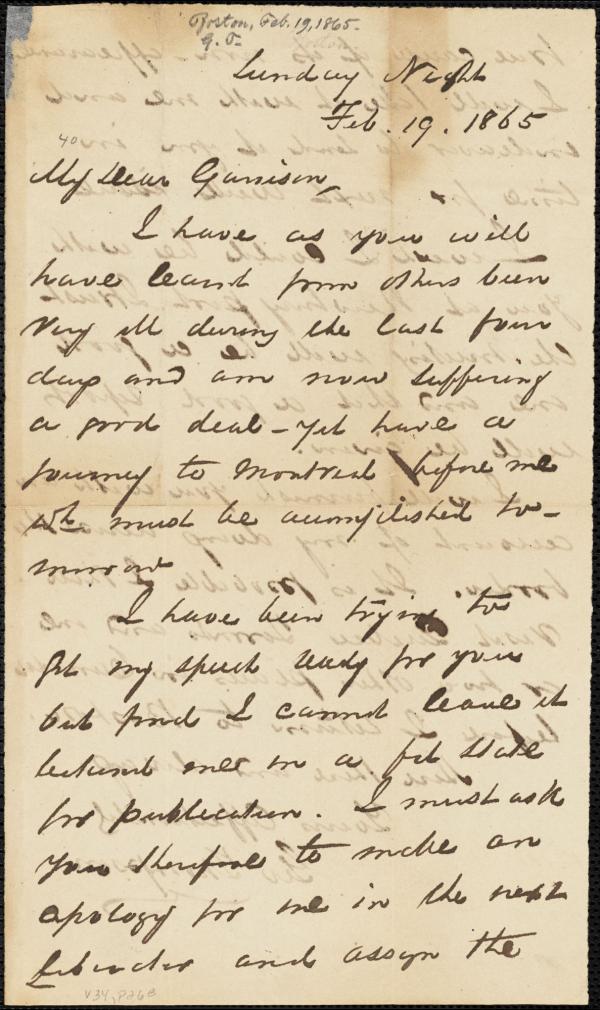 Boston, Feb. 19, 1865.
G. T.
Sunday Night
Feb. 19. 1865
40
My Dear Garrison,
I have as you will
have learnt from others been
very ill during the last four
days and am now suffering
a good deal - yet have a
journey to Montreal before me
wh. must be accomplished to-
morrow
I have been trying to
get my speech ready for you
but find I cannot leave it
behind me in a fit state
for publication. I must ask
you therefore to make an
apology for me in the next
Liberator and assign the
V34, P26B